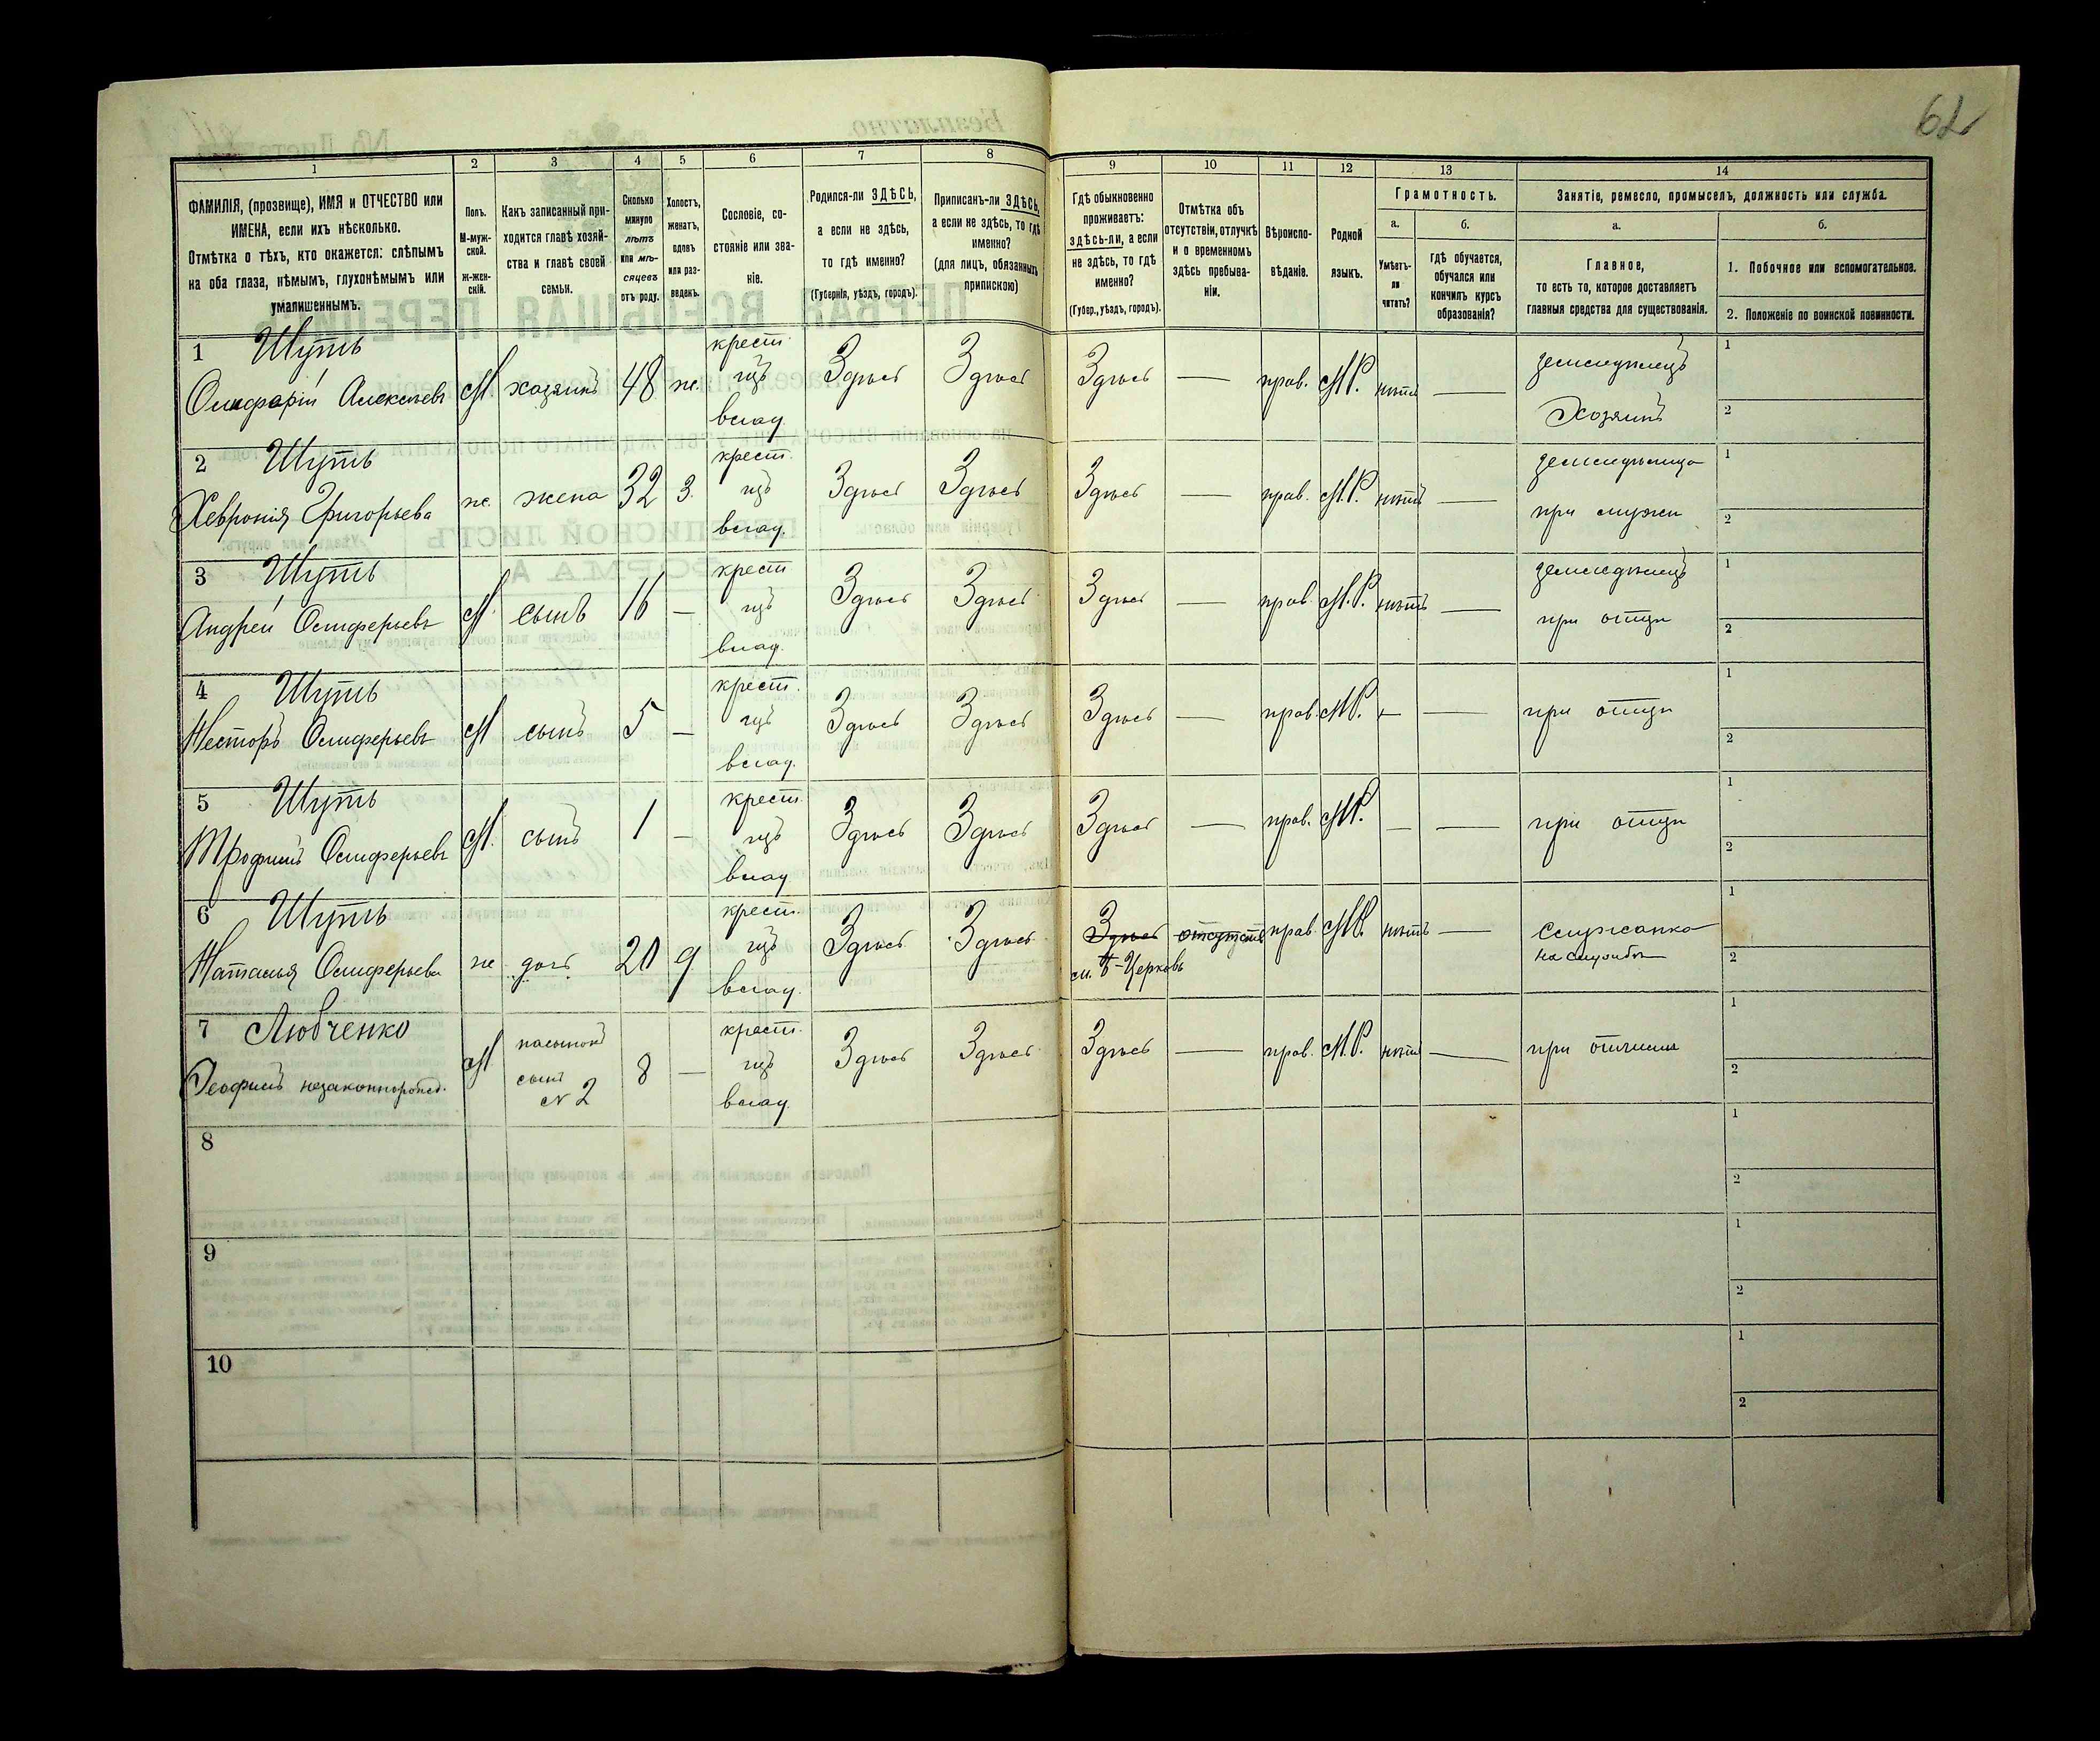 62
1 2 3 4 5 6 7 8 9 10 11 12 13 14
ФАМИЛІЯ, (прозвище), ИМЯ и ОТЧЕСТВО или
ИМЕНА, если ихъ нѣсколько.
Отмѣтка о тѣхъ, кто окажется: слѣпымъ
на оба глаза, нѣмымъ, глухонѣмымъ или
умалишеннымъ.
Полъ.
М-муж-
ской.
ж-жен-
скій.
Какъ записанный при-
ходится главѣ хозяй-
ства и главѣ своей
семьи.
Сколько
минуло
лѣтъ
или мѣ-
сяцевъ
отъ роду.
Холостъ,
женатъ,
вдовъ
или раз-
веденъ.
Сословіе, со-
стояніе или зва-
ніе.
Родился-ли ЗДѢСЬ,
а если не здѣсь,
то гдѣ именно?
(Губернія, уѣздъ, городъ).
Приписанъ-ли ЗДѢСЬ,
а если не здѣсь, то гдѣ
именно?
(для лицъ, обязанныхъ
припискою)
Гдѣ обыкновенно
проживаетъ:
здѣсь-ли, а если
не здѣсь, то гдѣ
именно?
(Губер., уѣздъ, городъ).
Отмѣтка объ
отсутствіи, отлучкѣ
и о временномъ
здѣсь пребыва-
ніи.
Вѣроиспо-
вѣданіе.
Родной
языкъ.
Грамотность.
а.
Умѣетъ-
ли
читать?
б.
гдѣ обучается,
обучался или
кончилъ курсъ
образованія?
Занятіе, ремесло, промыселъ, должность или служба.
а.
Главное,
то есть то, которое доставляетъ
главныя средства для существованія.
б.
1. Побочное или вспомогательное.
2. Положеніе по воинской повинности.
1 Шуть крест. земледѣлецъ 1
Алексѣевъ М хозяинъ 48 ж. Здѣсь Здѣсь Здѣсь — прав. М.Р. нѣтъ —
влад. Хозяинъ 2
2 Шуть крест. 1
Хевронія Григорьева ж. жена 32 З. Здѣсь Здѣсь Здѣсь — прав. М.Р. нѣтъ —
влад. при мужѣ 2
3 Шуть крест земледѣлецъ 1
Андрей Олиферьевъ М. сынъ 16 — Здѣсь Здѣсь Здѣсь — прав. М.Р. нѣтъ —
влад. при отцѣ 2
4 Шуть крест. 1
Несторъ Олиферьевъ М сынъ 5 — Здѣсь Здѣсь Здѣсь — прав. М.Р. — — при отцѣ
влад. 2
5 Шуть крест. 1
Трофимъ Олиферьевъ М. сынъ 1 — Здѣсь Здѣсь Здѣсь — прав. М.Р. — — при отцѣ
влад. 2
6 Шуть крест. 1
Наталья Олиферьева ж дочь 20 Здѣсь Здѣсь Здѣсь прав. М.Р. нѣтъ — Служанка
влад. Церковь на службѣ 2
7 Любченко крест. 1
Теофилъ незаконнорожд. М 8 — Здѣсь Здѣсь Здѣсь — прав. М.Р. нѣтъ — при отчимѣ
сынъ
№ 2 влад. 2
8 1
2
9 1
2
10 1
2